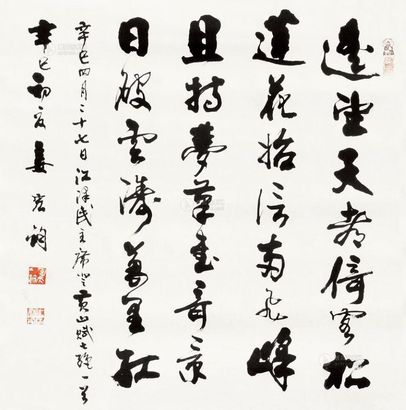 遥望天都倚客松
莲花始信两飞峰
且持梦笔书奇景
日破云涛万里红
辛巳四月二十七日江泽民主席登黄山赋七绝一首
辛巳初夏姜